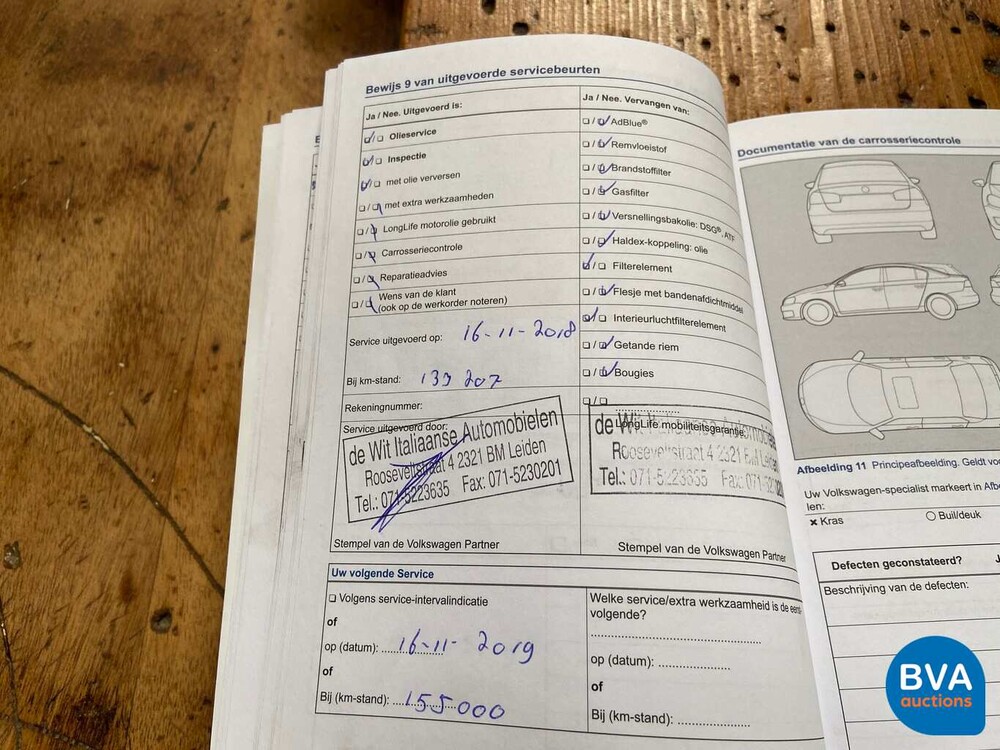 Bewijs 9 van uitgevoerde servicebeurten
Ja / Nee. Uitgevoerd is:
Olieservice
Inspectie
met olie verversen
met extra werkzaamheden
LongLife motorolie gebruikt
Carrosseriecontrole
Reparatieadvies
Wens van de klant
(ook op de werkorder noteren)
Service uitgevoerd op: 16-11-2018
Bij km-stand: 139 207
Rekeningnummer:
Service uitgevoerd door:
de Wit Italiaanse Automobielen
Rooseveltstraat 4 2321 BM Leiden
Tel.: 071-5223635 Fax: 071-5230201
Stempel van de Volkswagen Partner
Ja / Nee. Vervangen van:
AdBlue®
Remvloeistof
Brandstoffilter
Gasfilter
Versnellingsbakolie: DSG®, ATF
Haldex-koppeling: olie
Filterelement
Flesje met bandenafdichtmiddel
Interieurluchtfilterelement
Getande riem
Bougies
LongLife mobiliteitsgarantie
de Wit Italiaanse Automobielen
Rooseveltstraat 4 2321 BM Leiden
Tel.: 071-5223635 Fax: 071-5230201
Stempel van de Volkswagen Partner
Uw volgende Service
Volgens service-intervalindicatie
of
op (datum): 16-11-2019
of
Bij (km-stand): 155000
Welke service/extra werkzaamheid is de eerst-
volgende?
op (datum):
of
Bij (km-stand):
Documentatie van de carrosseriecontrole
Afbeelding 11 Principeafbeelding. Geldt vo
Uw Volkswagen-specialist markeert in Afbe
len:
× Kras
Buil/deuk
Defecten geconstateerd? J
Beschrijving van de defecten:
BVA
auctions